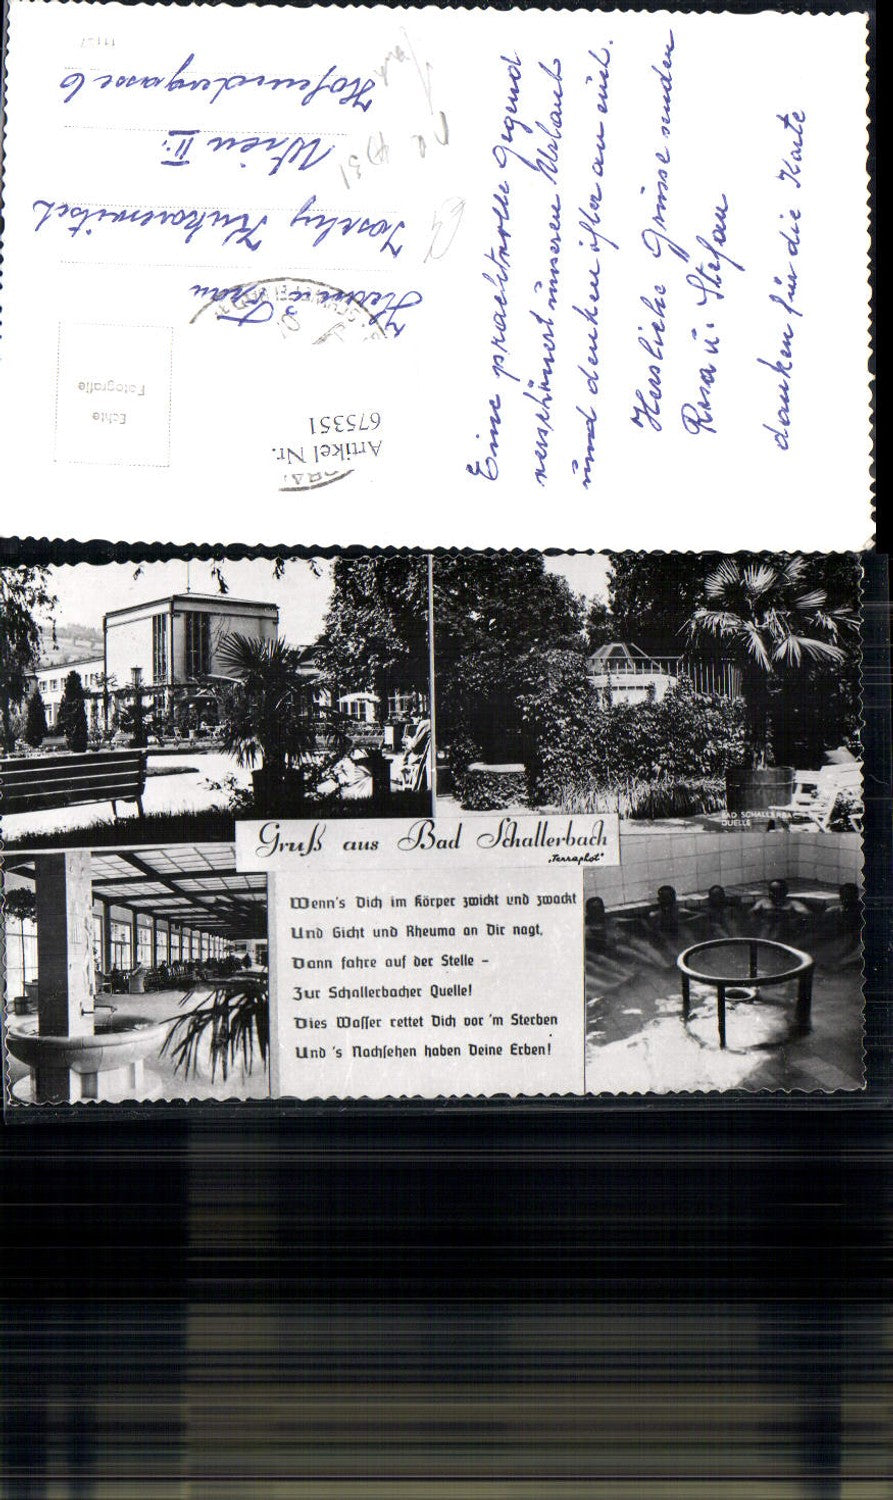 Eine prachtvolle Gegend
verschönert unseren Urlaub
und denken öfter an euch.
Herzliche Grüsse senden
Rosa u. Stefan
danken für die Karte
Herrn u. Frau
Wien II.
Echte
Fotografie
Artikel Nr.
675351
Gruß aus Bad Schallerbach
"Terraphot"
BAD SCHALLERBACH
QUELLE
Wenn's Dich im Körper zwickt und zwackt
Und Gicht und Rheuma an Dir nagt,
Dann fahre auf der Stelle –
Zur Schallerbacher Quelle!
Dies Wasser rettet Dich vor'm Sterben
Und 's Nachsehen haben Deine Erben!